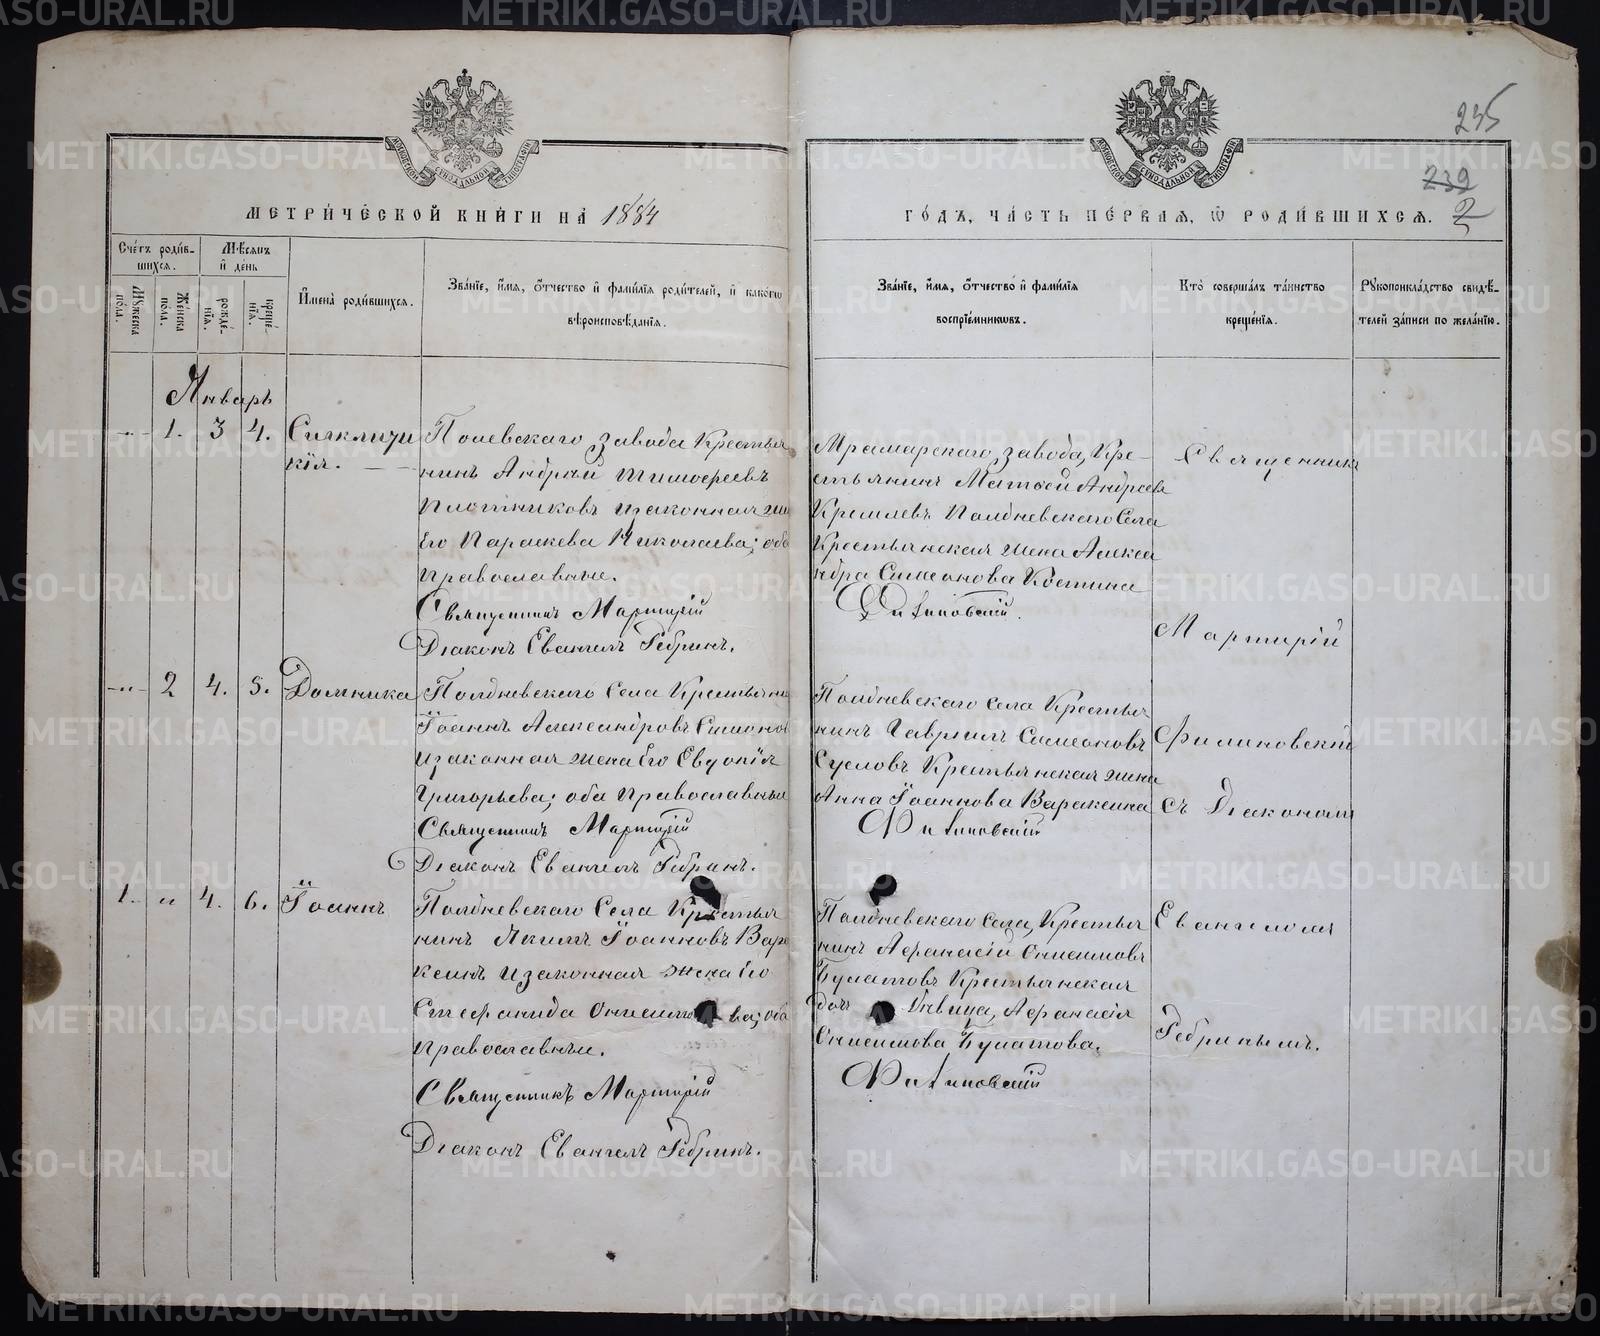 235
239
2
МЕТРИЧЕСКОЙ КНИГИ НА 1884
ГОДЪ, ЧАСТЬ ПЕРВАЯ, Ѡ РОДИВШИХСЯ.
Счетъ родив-
шихся.
Мужеска пола.
Женска пола.
Мѣсяцъ
и день
рожде-
нія.
креще-
нія.
Имена родившихся.
Званіе, имя, отчество и фамилія родителей, и какого
вѣроисповѣданія.
Званіе, имя, отчество и фамилія
воспріемниковъ.
Кто совершалъ таинство
крещенія.
Рукоприкладство свидѣ-
телей записи по желанію.
Январь
1. 3 4. Синклити
кія.
Полевскаго завода Крестья
нинъ Андрѣй Тимофеевъ
Плотниковъ и законная же
Его Параскева Николаева; оба
Православные.
Священникъ Мартирій
Діаконъ Евангелъ Ребринъ.
Мраморскаго завода, Кре-
стьянинъ Матѳей Андреевъ
Кремлевъ Полдневскаго Села
Крестьянская жена Алекса
ндра Симеонова Костина
Филиновскій.
Священник
Мартирій
Филиновскій
съ Діакономъ
Евангеломъ
Ребринымъ.
-"- 2 4. 5. Домника
Полдневскаго Села Крестьяни
Іоаннъ Александровъ Симонов
и законная жена Его Евдокія
Григорьева; оба Православные
Священникъ Мартирій
Діаконъ Евангелъ Ребринъ.
Полдневскаго села Крестья
нинъ Гавріилъ Симеоновъ
Сусловъ Крестьянская жена
Анна Іоаннова Варакина
Филиновскій
1. " 4. 6. Іоаннъ
Полдневскаго Села Крестья
нинъ Якимъ Іоанновъ Вара
кинъ и законная жена Его
Стефанида Онисимова; оба
Православные.
Священникъ Мартирій
Діаконъ Евангелъ Ребринъ.
Полдневскаго Села, Крестья
нинъ Афанасій Онисимовъ
Булатовъ Крестьянская
доч дѣвица, Афанасія
Онисимова Булатова.
Филиновскій
METRIKI.GASO-URAL.RU